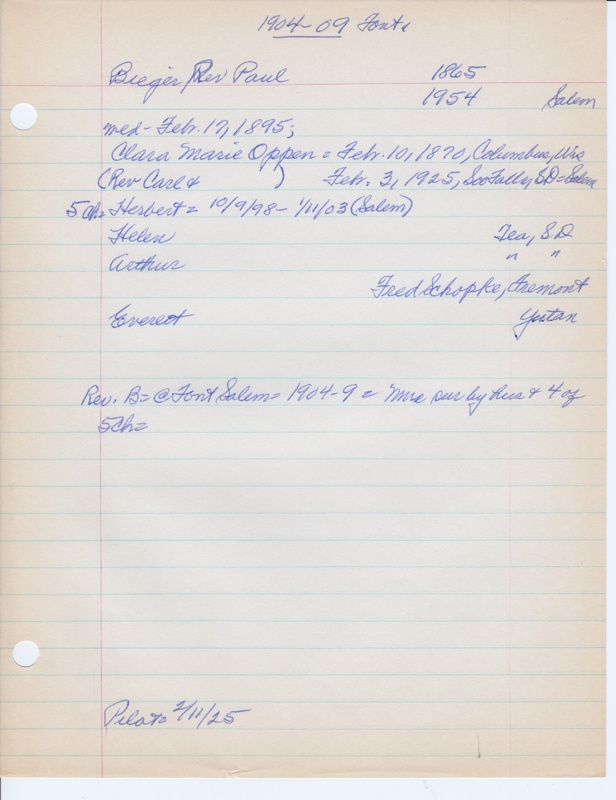 1904-09 Font
Bieger, Rev Paul 1865
1954 Salem
wed- Feb. 17, 1895;
Clara Marie Oppen = Feb. 10, 1870, Columbus, Wis
(Rev Carl & ) Feb. 3, 1925, Soo Falls, SD = Salem
5 Ch = Herbert = 10/9/98 - 1/11/03 (Salem)
Helen Tea, SD
Arthur " "
Fred Schopke, Fremont
Everett Yutan
Rev. B = @ Font Salem = 1904-9 = Mrs sur by hus & 4 of
5 Ch =
Pilot = 2/11/25